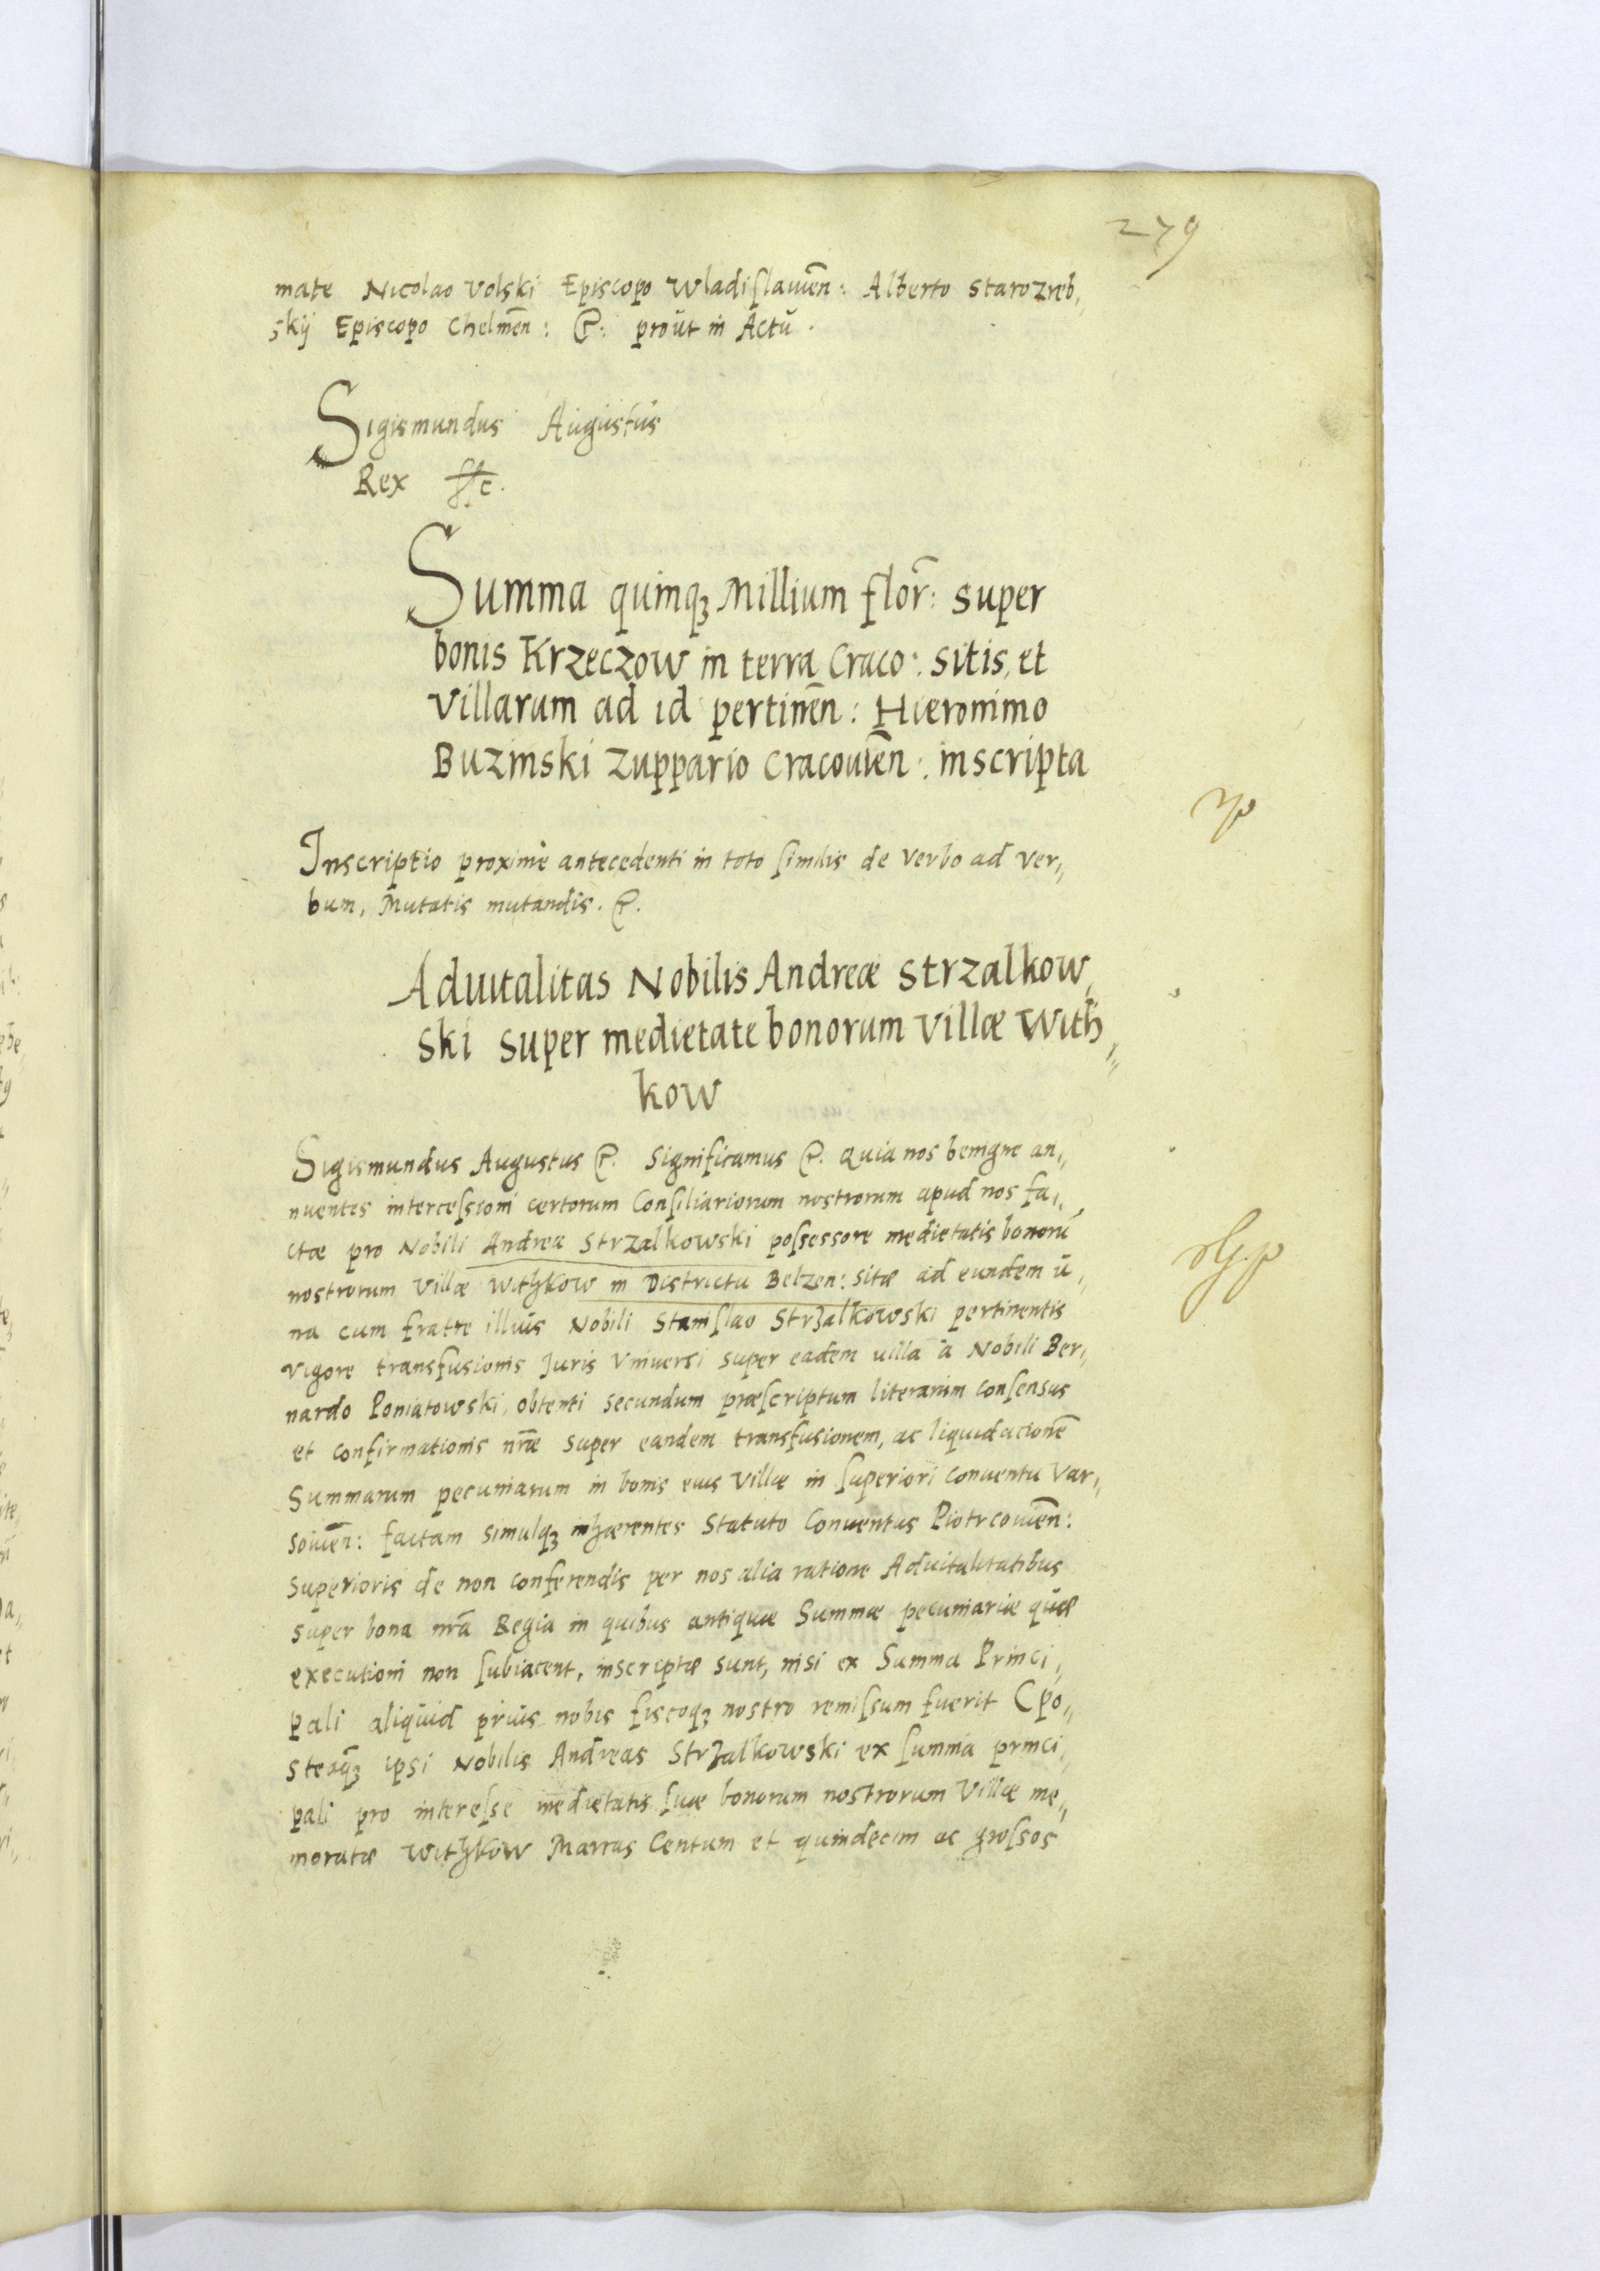 279
mate Nicolao Volski Episcopo Wladislauien̄: Alberto Starozreb,
skij Episcopo Chelmen̄: &: proút in Actú.
Sigismundus Augústús
Rex &c.
Summa quinqꝫ Millium flor̄: super
bonis Krzeczow in terra Craco: sitis, et
villarum ad id pertinen̄: Hieronimo
Buzinski Zuppario Cracouien̄: inscripta
Inscriptio proximè antecedenti in toto similis de verbo ad ver,,
bum, Mutatis mutandis. &.
Aduitalitas Nobilis Andreæ Strzalkow,
ski super medietate bonorum villæ With,,
kow
Sigismundus Augustus &. Significamus &. Quia nos benigne an,,
nuentes intercessioni certorum Consiliariorum nostrorum apud nos fa,,
ctæ pro Nobili Andrea Strzalkowski possessore medietatis bonorū
nostrorum villæ Withkow in Districtu Belzen: sitæ ad eundem ú,
na cum fratre illiús Nobili Stanislao Strzalkowski pertinentis
vigore transfusionis Juris Vniuersi super eadem uilla à Nobili Ber,,
nardo Poniatowski, obtenti secundum præscriptum literarum consensus
et confirmationis nr̄æ super eandem transfusionem, ac liquidacionē
Summarum pecuniarum in bonis eius villæ in superiori conuentu Var,,
souien̄: factam simulqꝫ inhærentes Statuto Conuentus Piotrcouien̄:
superioris de non conferendis per nos alia ratione Aduitalitatibus
super bona nr̄a Regia in quibus antiquæ Summæ pecuniariæ quæ
executioni non subiacent, inscriptæ sunt, nisi ex Summa Princi,,
pali aliqúid priús nobis fiscoqꝫ nostro remissum fuerit Cpo,,
steaqꝫ ipsi Nobilis Andreas Strzalkowski ex summa princi,
pali pro interesse medietatis suæ bonorum nostrorum Villæ me,,
moratæ Withkow Marcas Centum et quindecim ac grossos